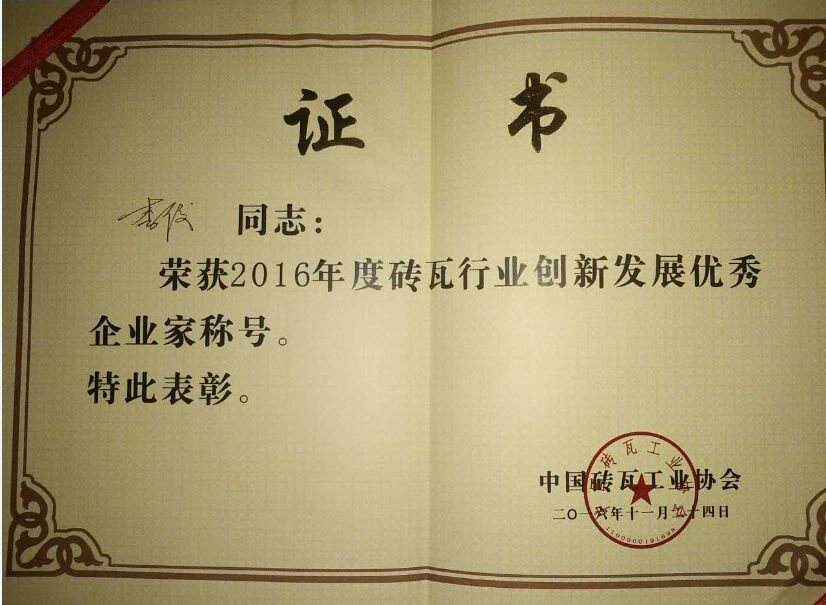 证 书
李俊 同志：
荣获2016年度砖瓦行业创新发展优秀
企业家称号。
特此表彰。
中国砖瓦工业协会
二〇一六年十一月二十四日